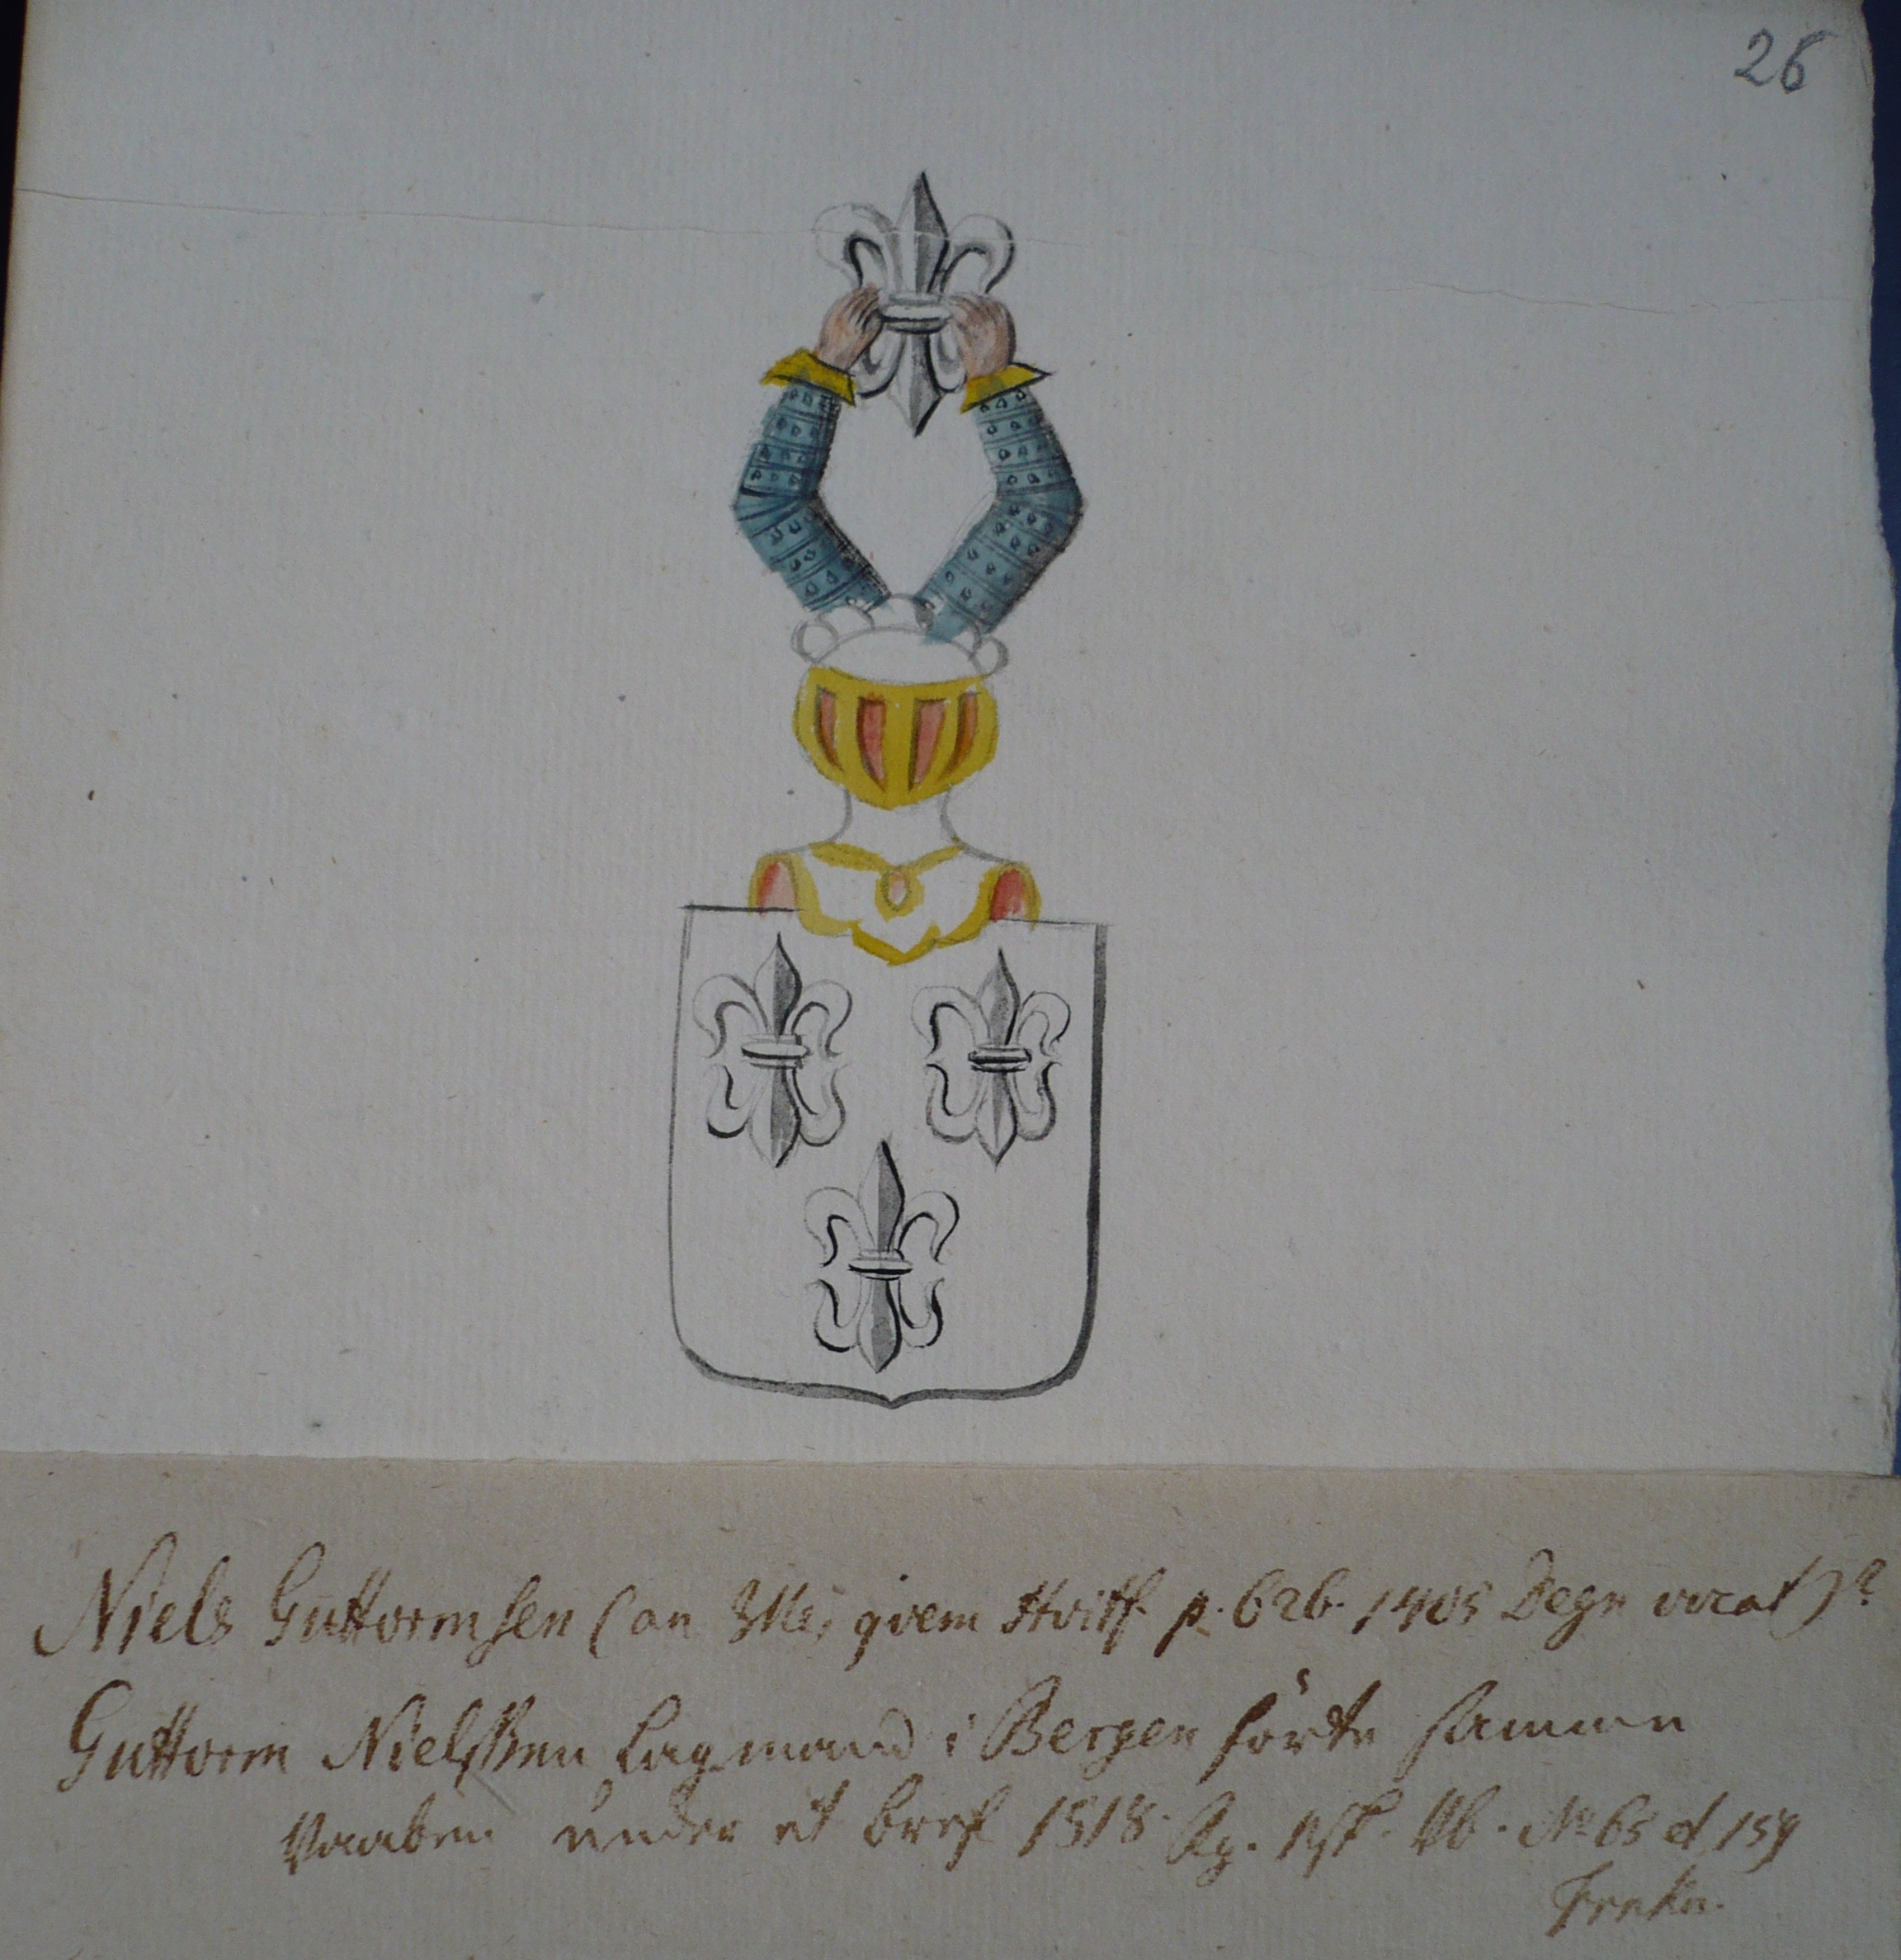 26
Niels Guttormsen (an Ille, qvem Hvitf. p. 626. 1405 Degn vocat)?
Guttorm Nielssen Lagmand i Bergen förte samme
Vaaben under et bref 1518. N. 65 d 159